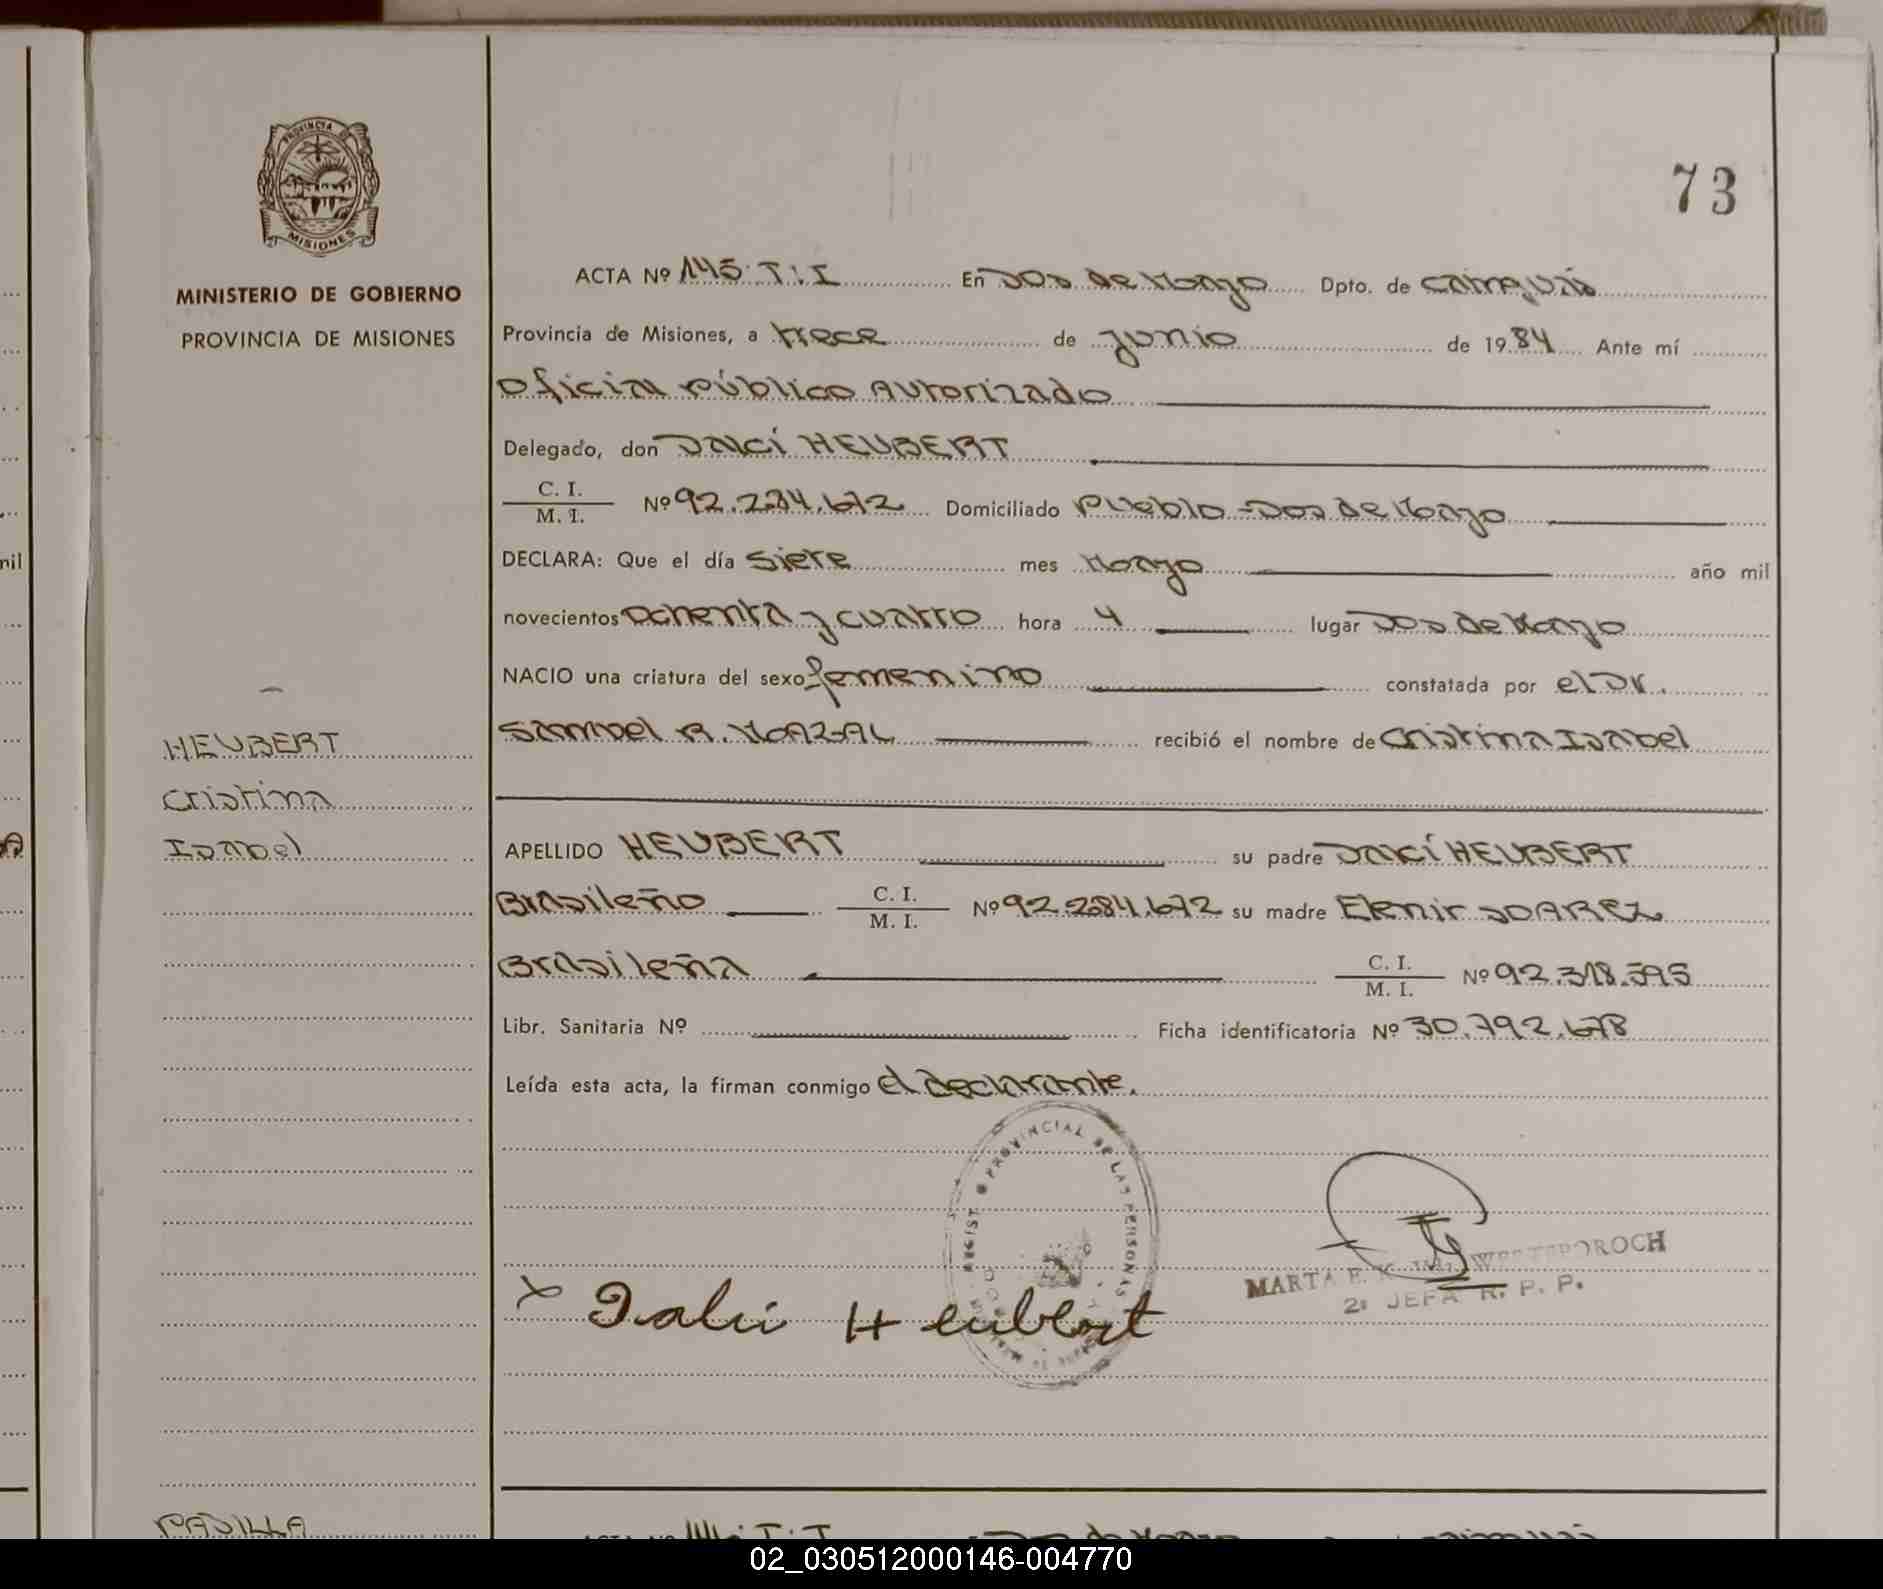 73
PROVINCIA DE
MISIONES
MINISTERIO DE GOBIERNO
PROVINCIA DE MISIONES
ACTA Nº 145. T: I En Dos de Mayo Dpto. de Cainguás
Provincia de Misiones, a trece de junio de 1984 Ante mí
Oficial Público Autorizado
Delegado, don DALCÍ HEUBERT
C. I.
M. I. Nº 92.284.672 Domiciliado Pueblo - Dos de Mayo
DECLARA: Que el día siete mes Mayo año mil
novecientos ochenta y cuatro hora 4 lugar Dos de Mayo
NACIO una criatura del sexo femenino constatada por el Dr.
Samuel R. MOAZ-AL recibió el nombre de Cristina Isabel
HEUBERT
Cristina
Isabel
APELLIDO HEUBERT su padre DALCÍ HEUBERT
Brasileño C. I.
M. I. Nº 92.284.672 su madre Elenir SOAREZ
Brasileña C. I.
M. I. Nº 92.318.595
Libr. Sanitaria Nº Ficha identificatoria Nº 30.792.678
Leída esta acta, la firman conmigo el declarante.
PROVINCIAL DE LAS PERSONAS
Dalci Heubert
MARTA E. K.
2º JEFA R. P. P.
PADILLA
02_030512000146-004770